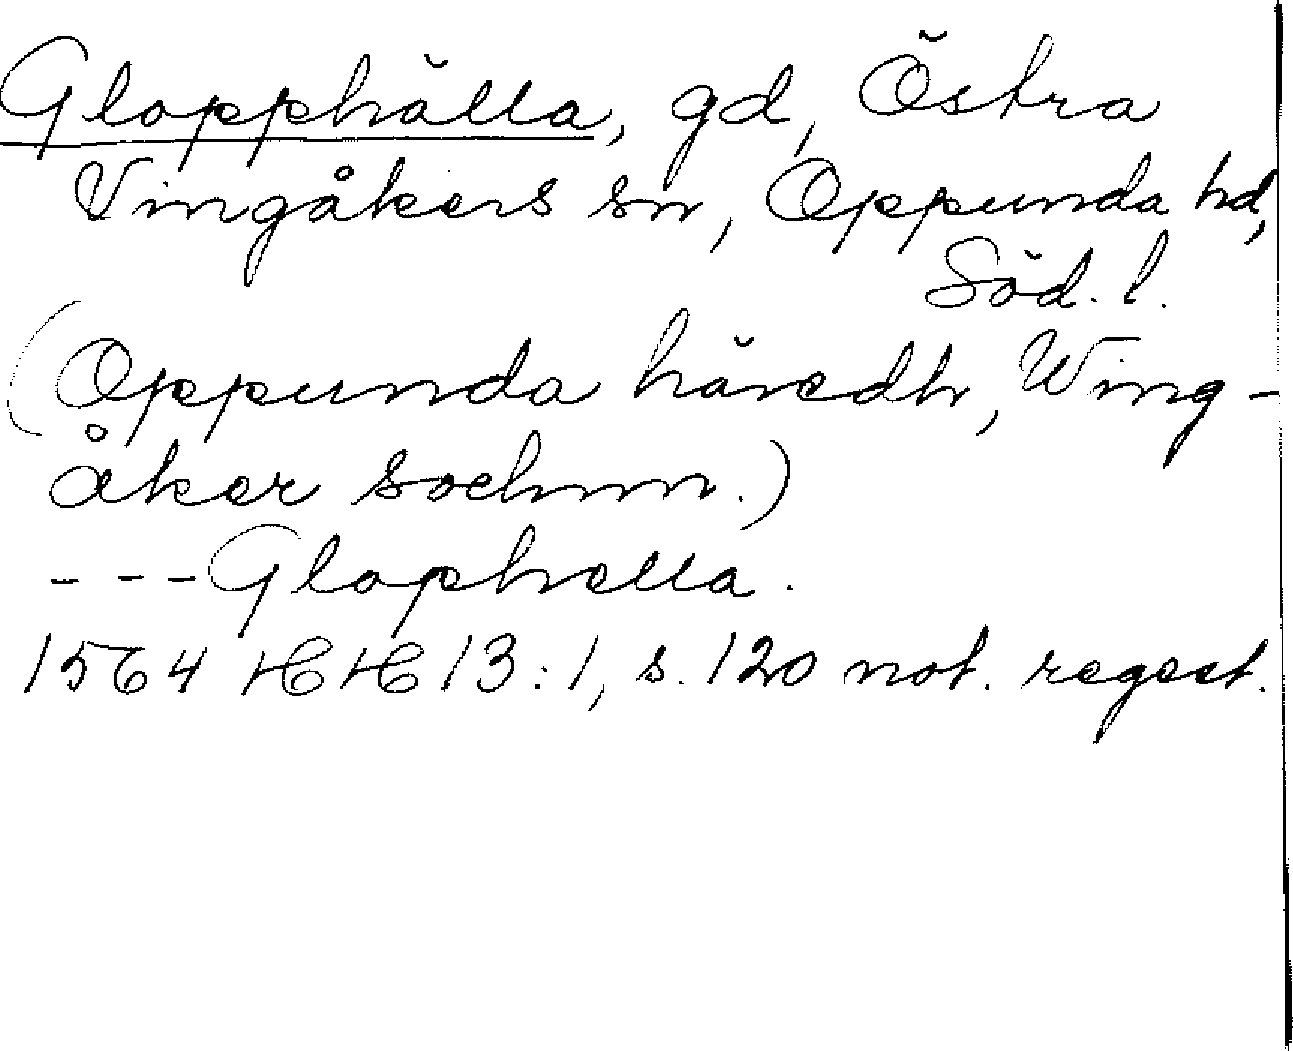 Glopphälla, gd, Östra
Vingåkers sn, Oppunda hd,
Söd. l.
(Oppunda häredh, Wing-
åker sochnn.)
--- Glophella.
1564 HH 13:1, s. 120 not. regest.